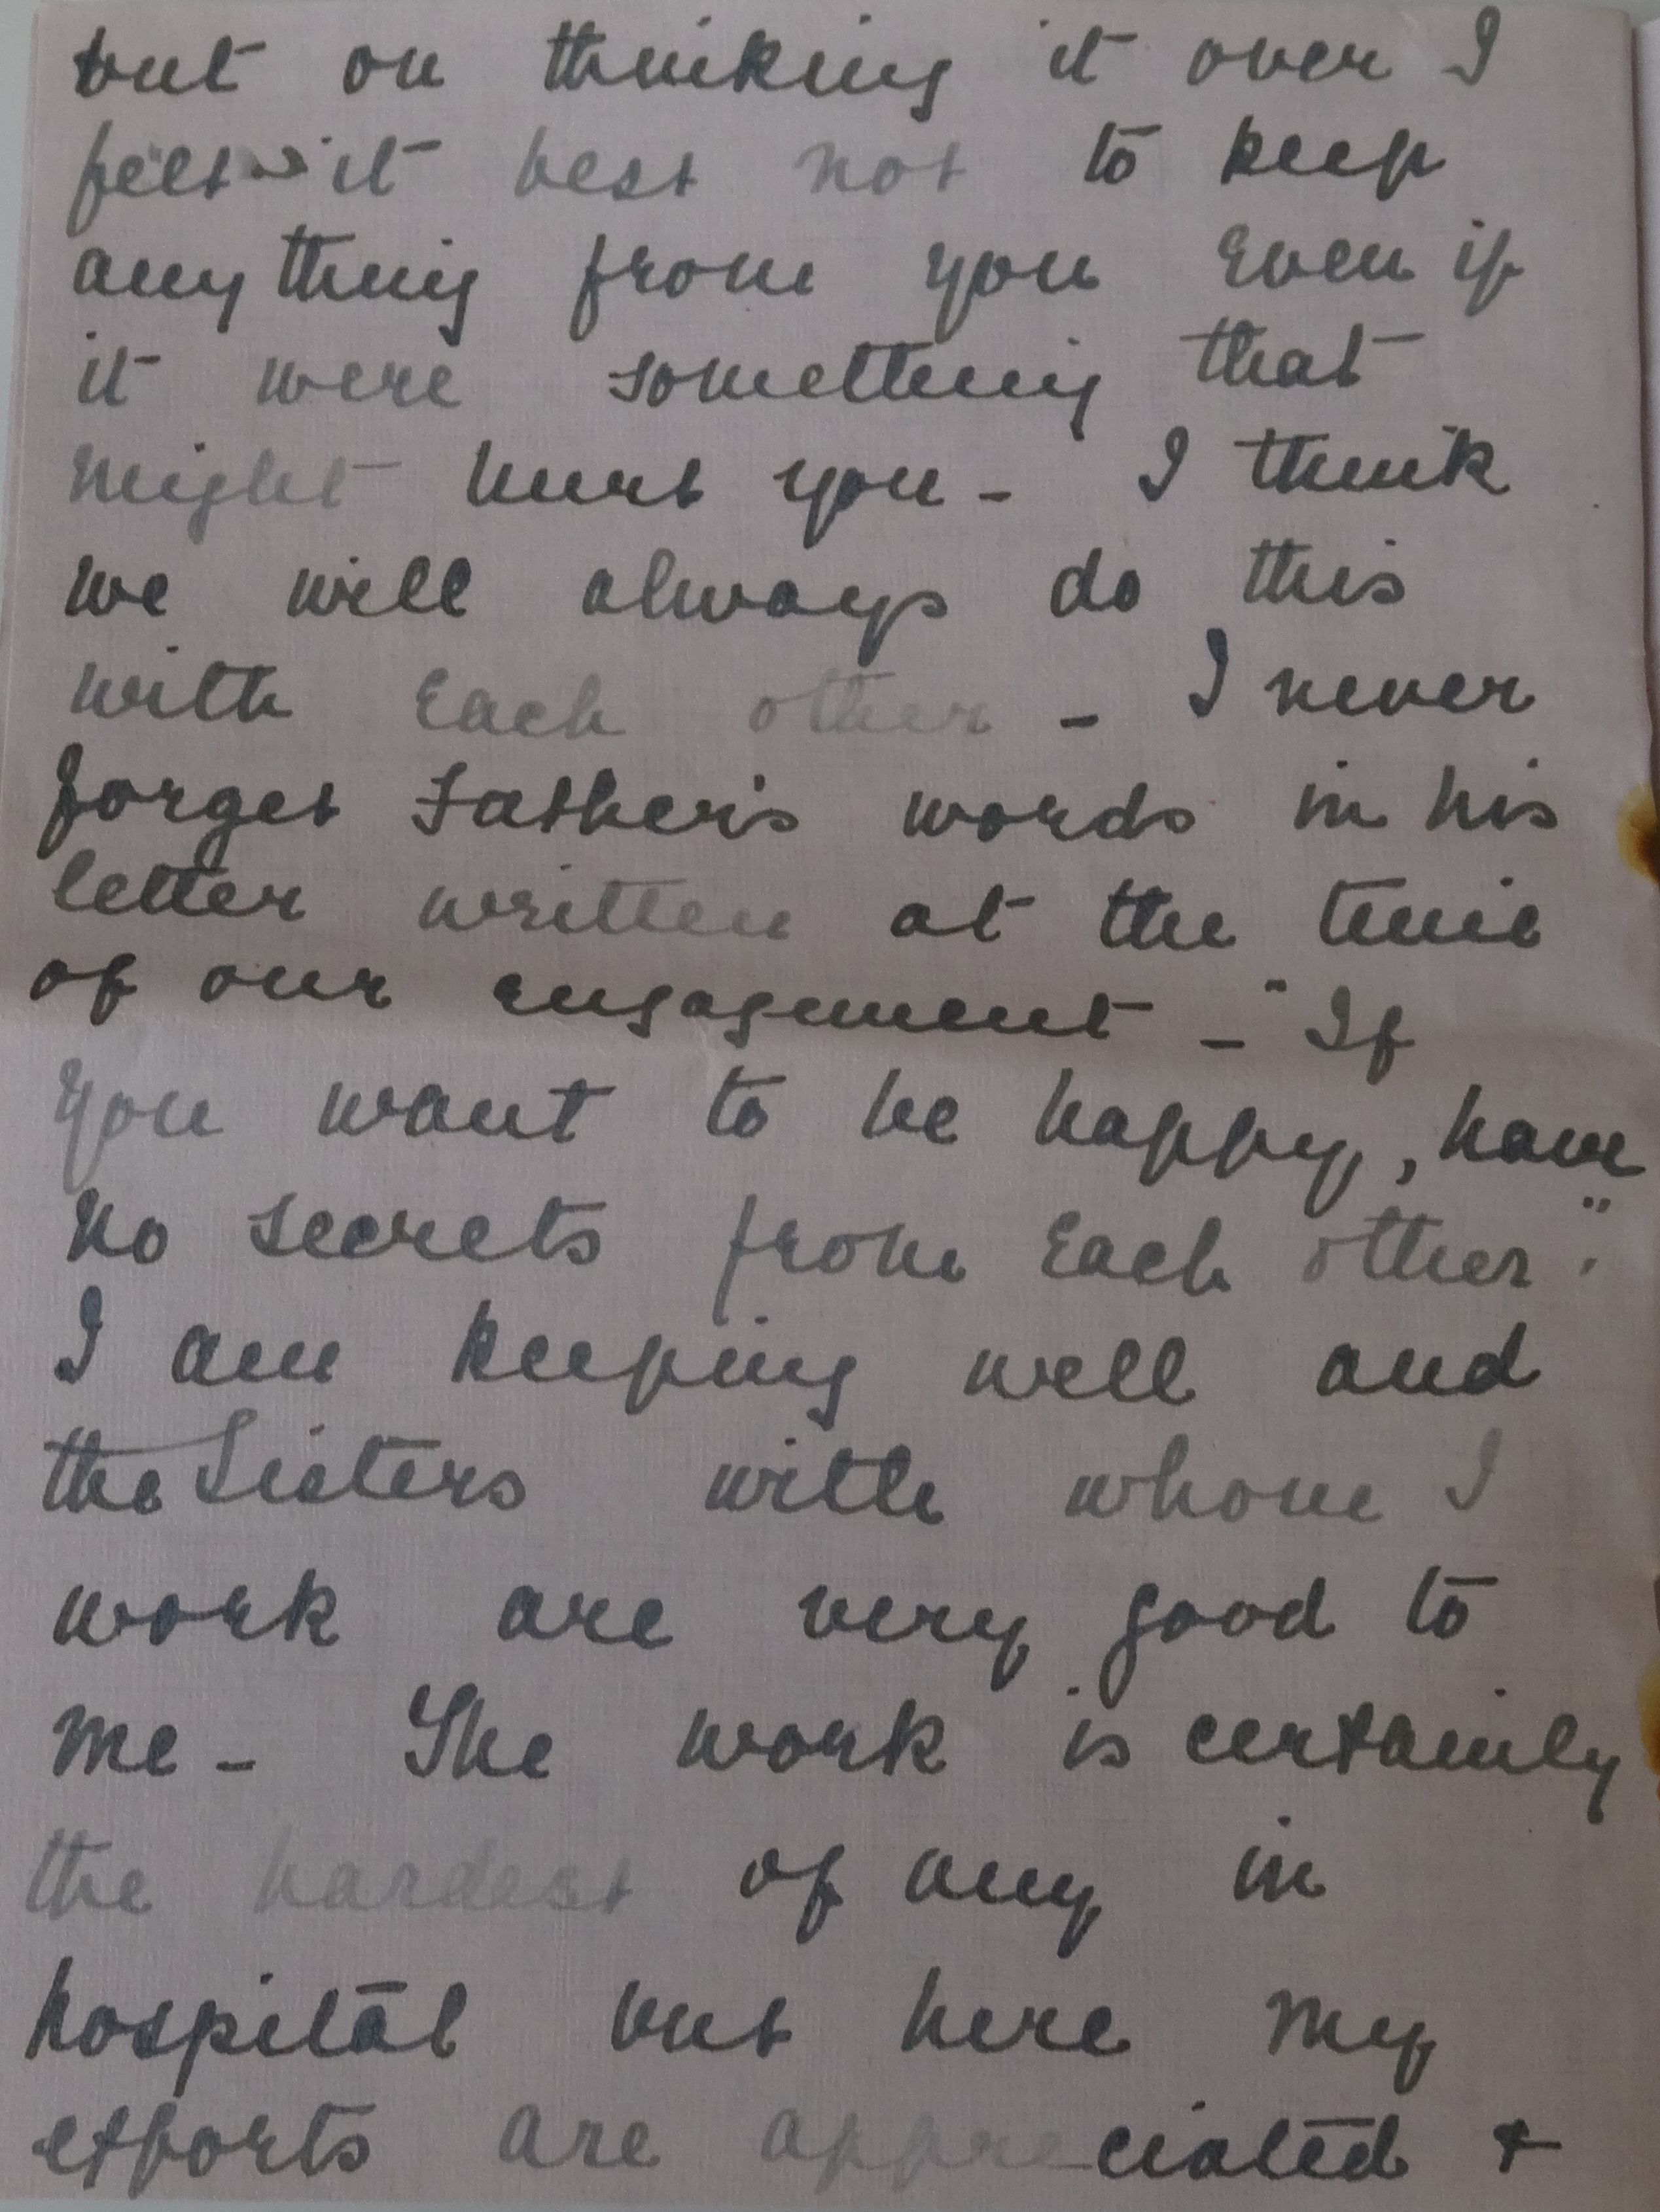 but on thinking it over I
felt it best not to keep
anything from you even if
it were something that
might hurt you - I think
we will always do this
with Each other - I never
forget Father's words in his
letter written at the time
of our engagement - "If
you want to be happy, have
no secrets from Each other."
I am keeping well and
the Sisters with whom I
work are very good to
me - The work is certainly
the hardest of any in
hospital but here my
efforts are appreciated +